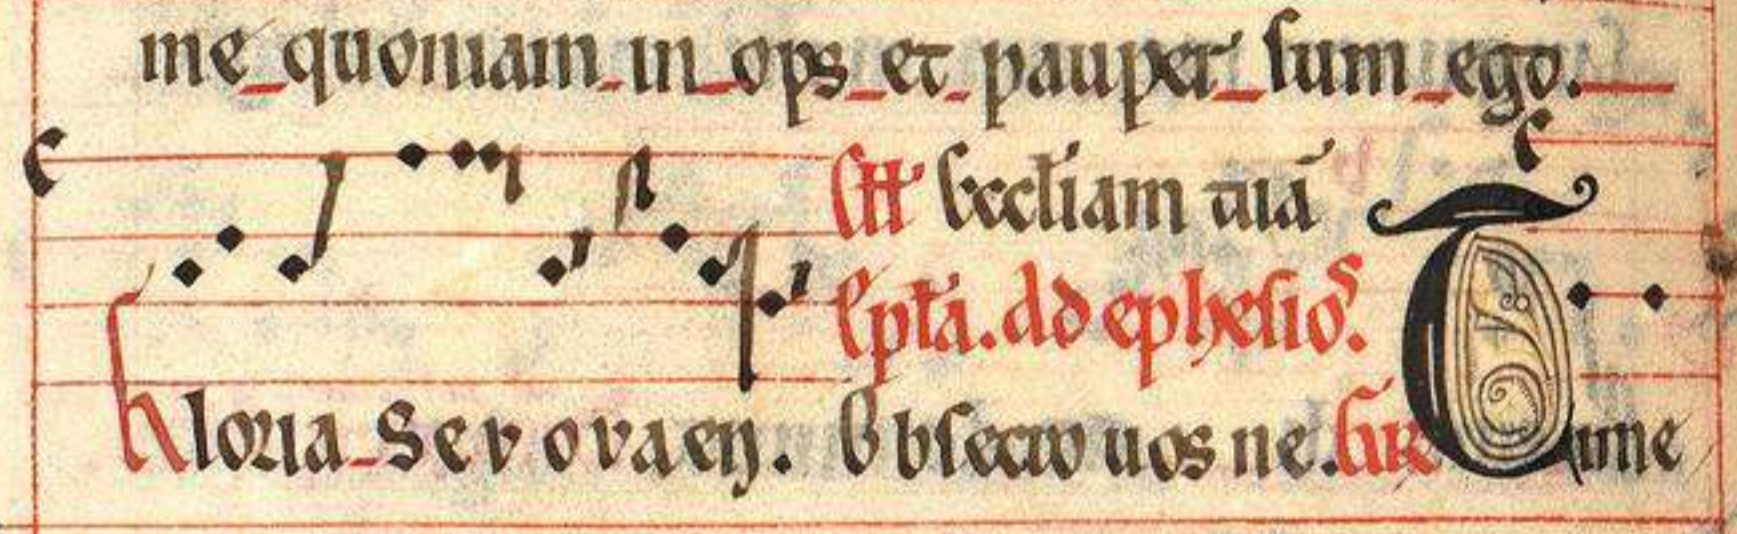 me quoniam in ops et pauper sum ego.
eccl̄iam tuā
Ep̄la. ad ephesios.
Gloria Seuouaen. Obsecro uos ne. Time